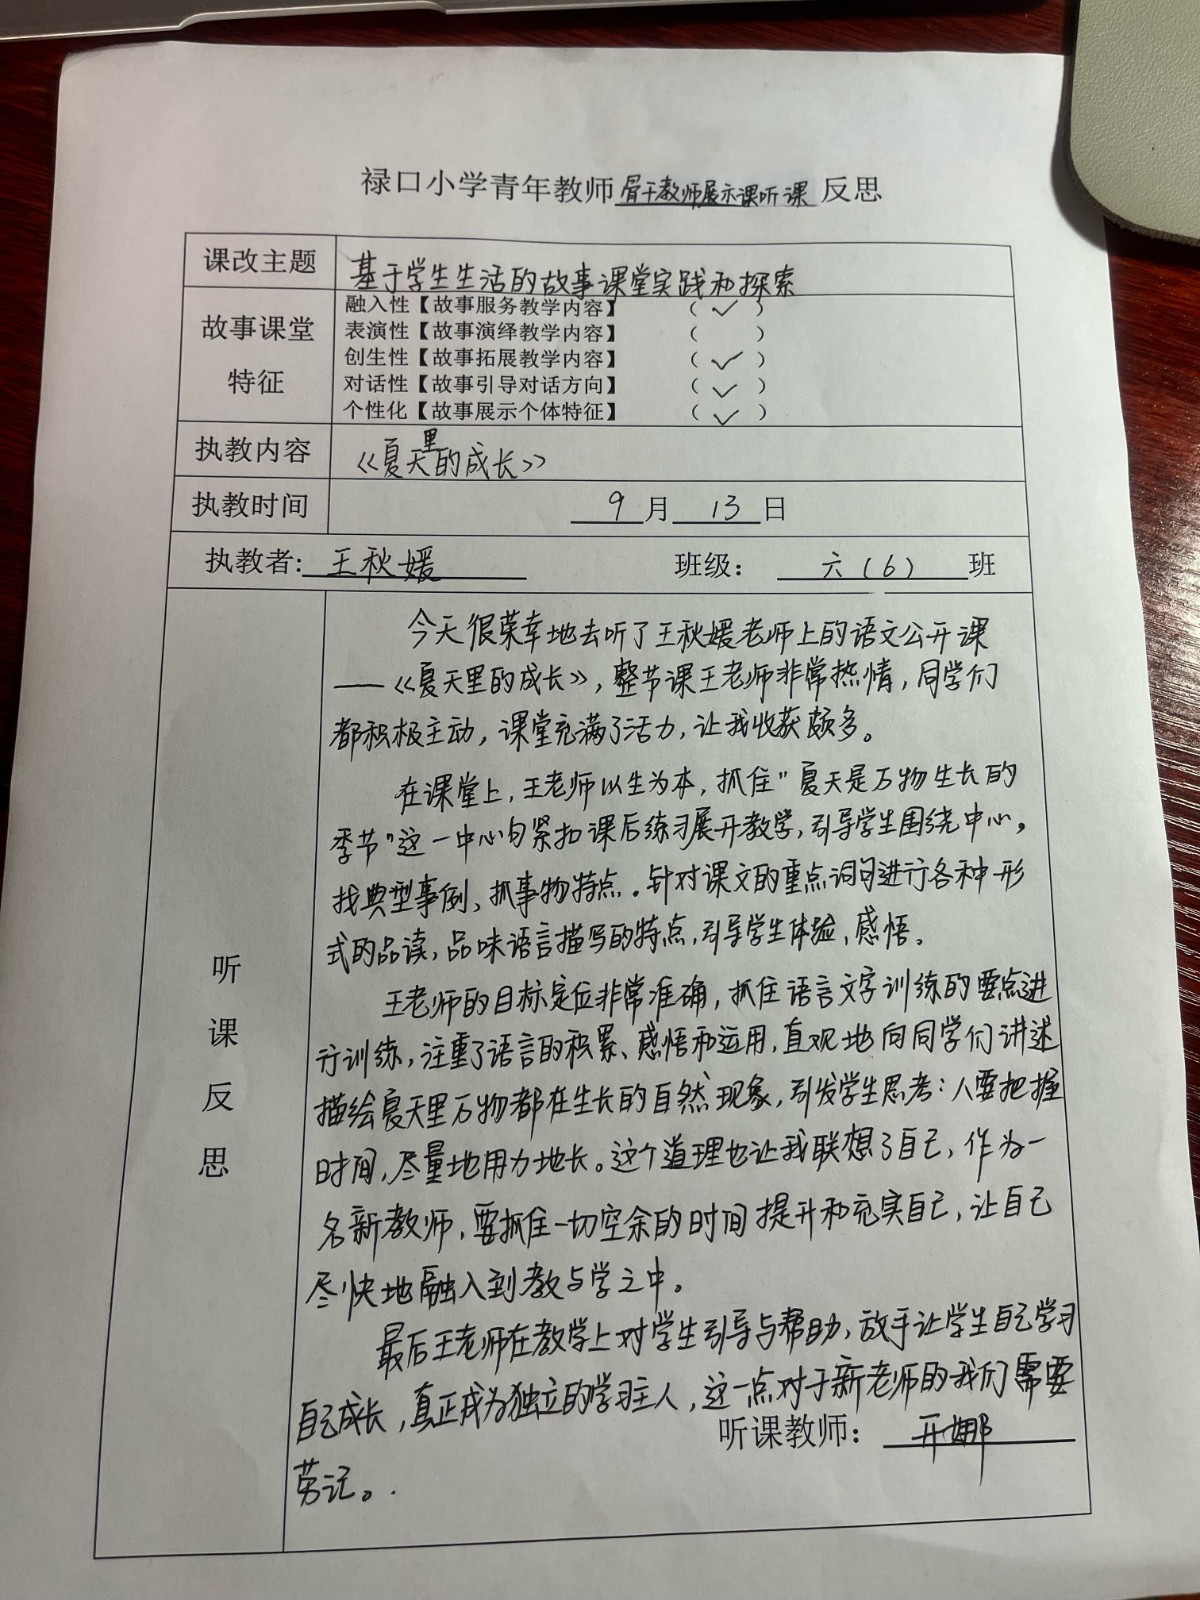 禄口小学青年教师骨干教师展示课听课反思
课改主题 基于学生生活的故事课堂实践和探索
故事课堂特征
融入性【故事服务教学内容】 （ ✓ ）
表演性【故事演绎教学内容】 （ ）
创生性【故事拓展教学内容】 （ ✓ ）
对话性【故事引导对话方向】 （ ✓ ）
个性化【故事展示个体特征】 （ ✓ ）
执教内容 《夏天里的成长》
执教时间 9月13日
执教者: 王秋媛 班级： 六（6）班
听课反思
今天很荣幸地去听了王秋媛老师上的语文公开课
——《夏天里的成长》，整节课王老师非常热情，同学们
都积极主动，课堂充满了活力，让我收获颇多。
在课堂上，王老师以生为本，抓住"夏天是万物生长的
季节"这一中心句紧扣课后练习展开教学，引导学生围绕中心，
找典型事例、抓事物特点。针对课文的重点词句进行各种形
式的品读，品味语言描写的特点，引导学生体验、感悟。
王老师的目标定位非常准确，抓住语言文字训练的要点进
行训练，注重了语言的积累、感悟和运用，直观地向同学们讲述
描绘夏天里万物都在生长的自然现象，引发学生思考：人要把握
时间，尽量地用力地长。这个道理也让我联想了自己，作为一
名新教师，要抓住一切空余的时间提升和充实自己，让自己
尽快地融入到教与学之中。
最后王老师在教学上对学生引导与帮助，放手让学生自己学习
自己成长，真正成为独立的学习主人，这一点对于新老师的我们需要
劳记。.
听课教师： 亓娜